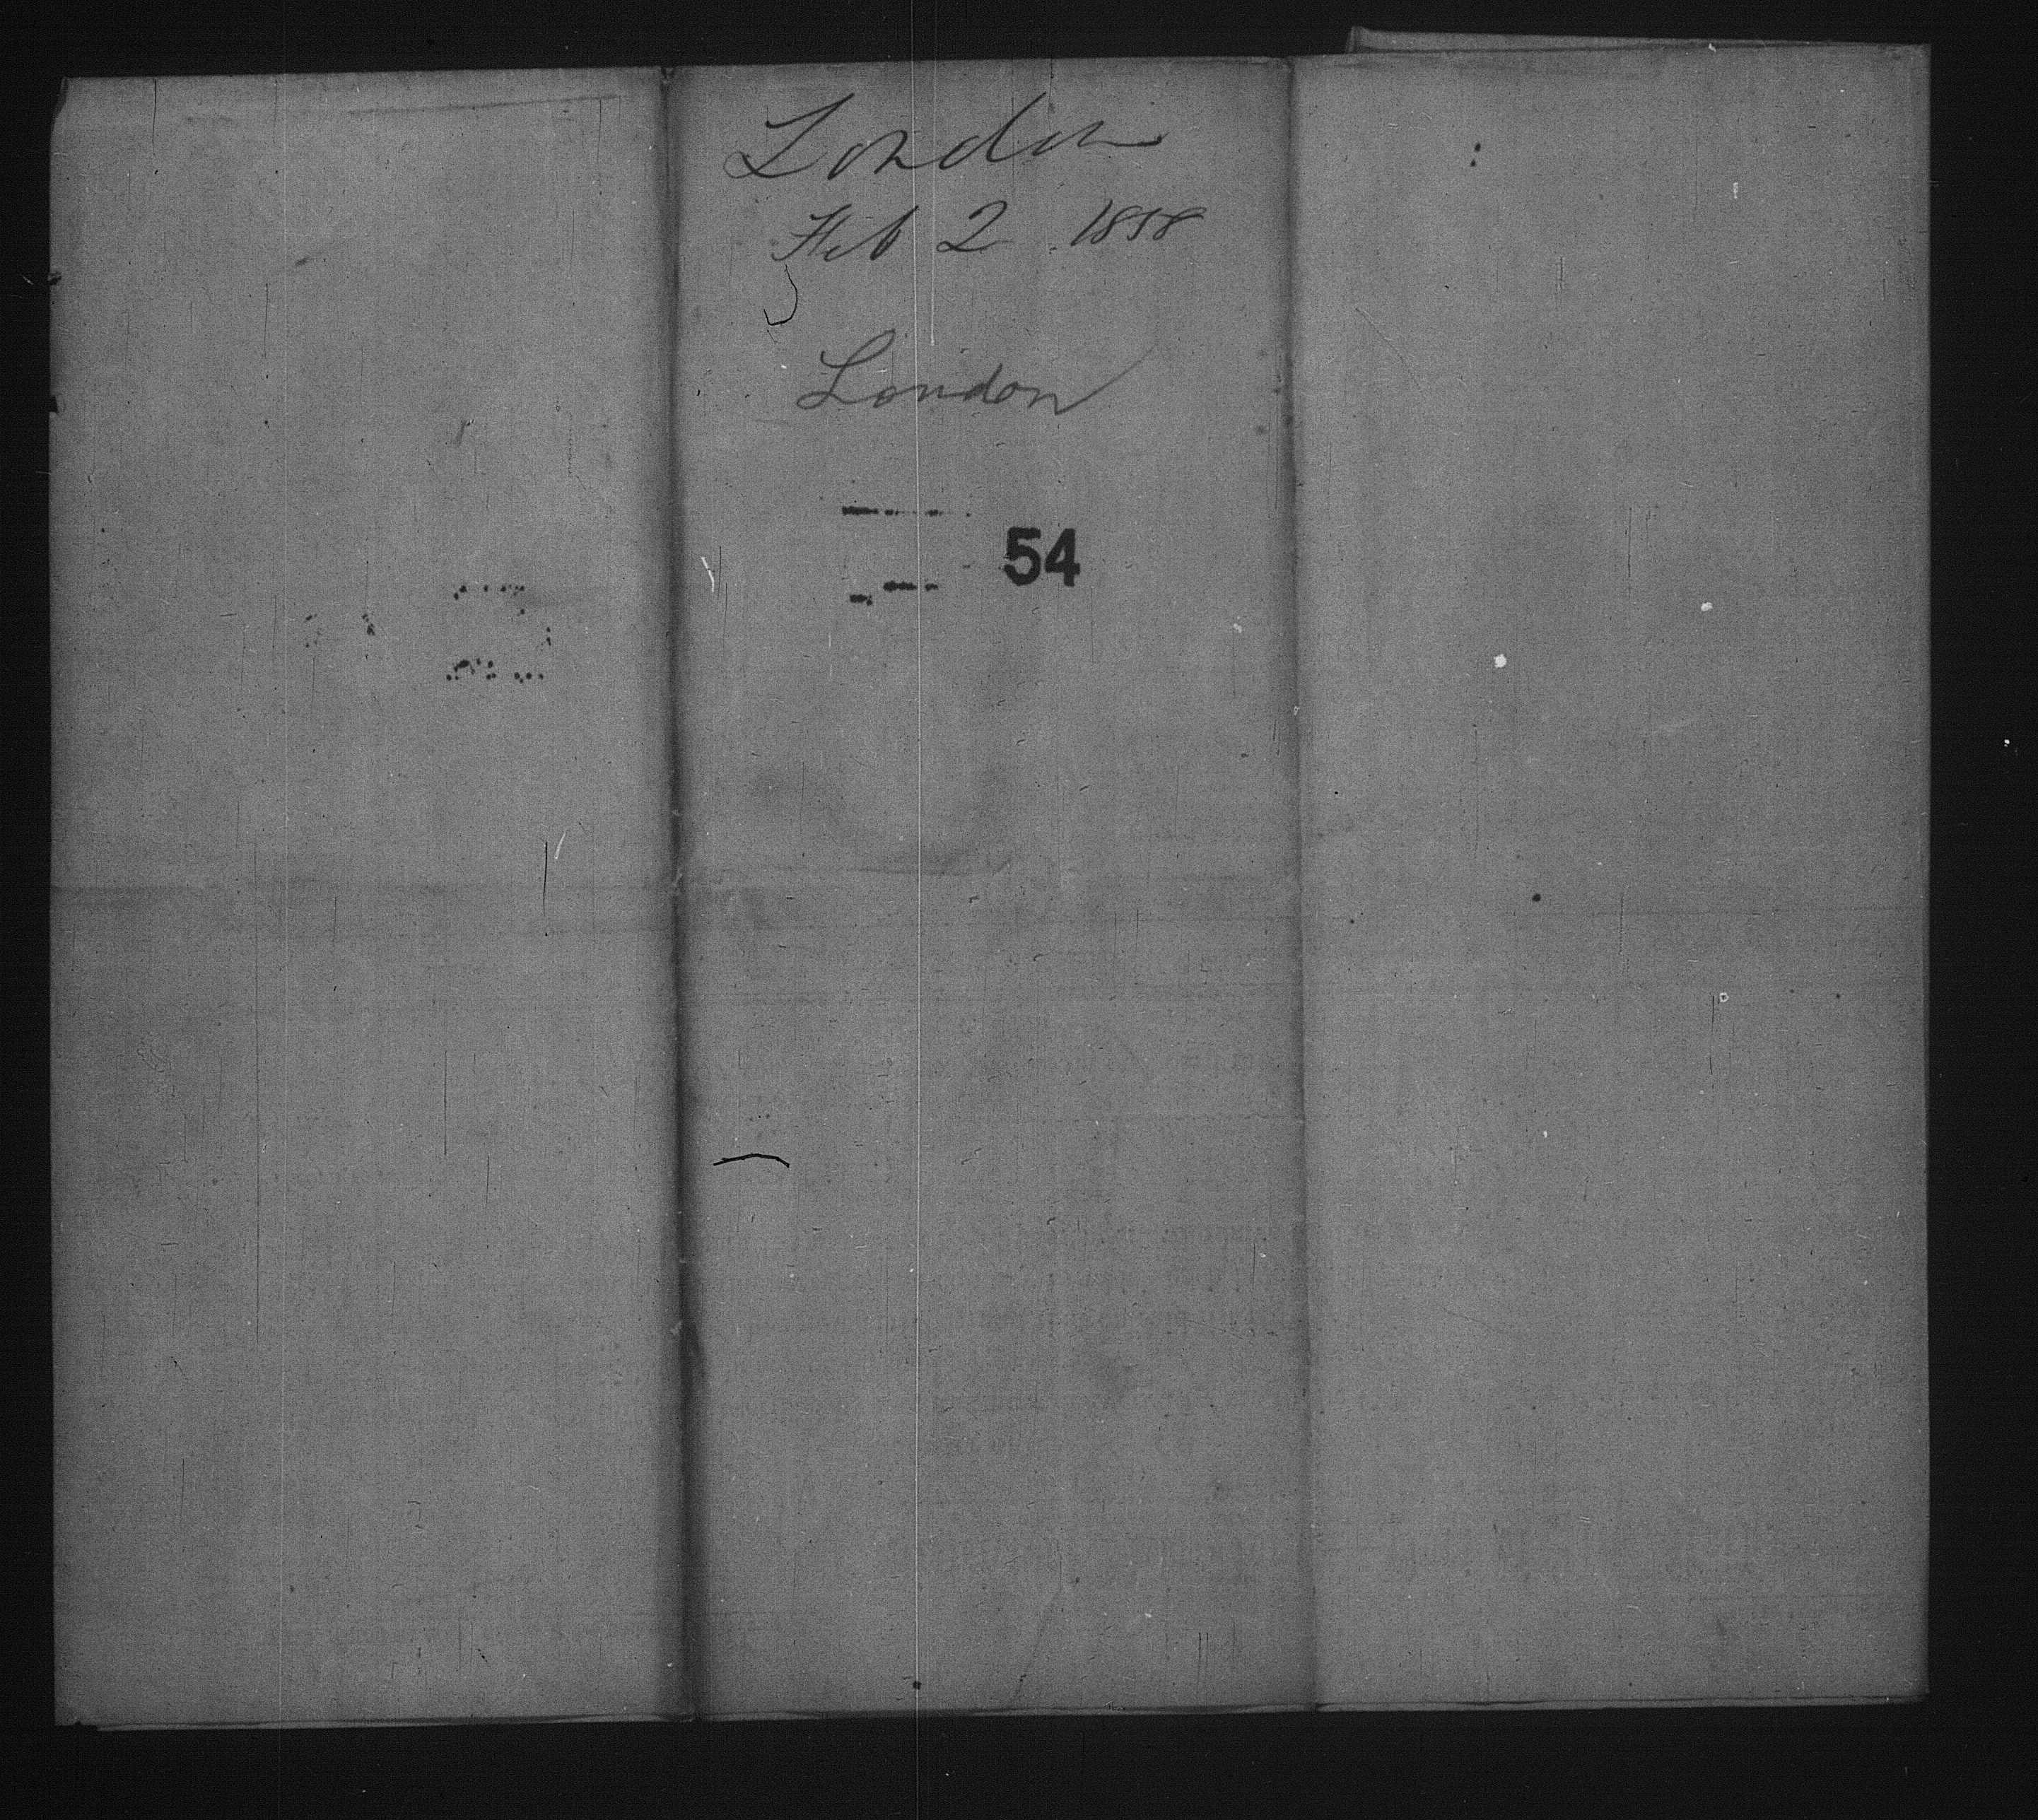 London
Feb 2 1858
London
54